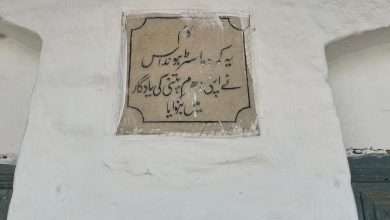 اوم
یہ کمرہ ماسٹر ہوند داس
نے اپنی دھرم پتنی کی یادگار
میں بنوایا